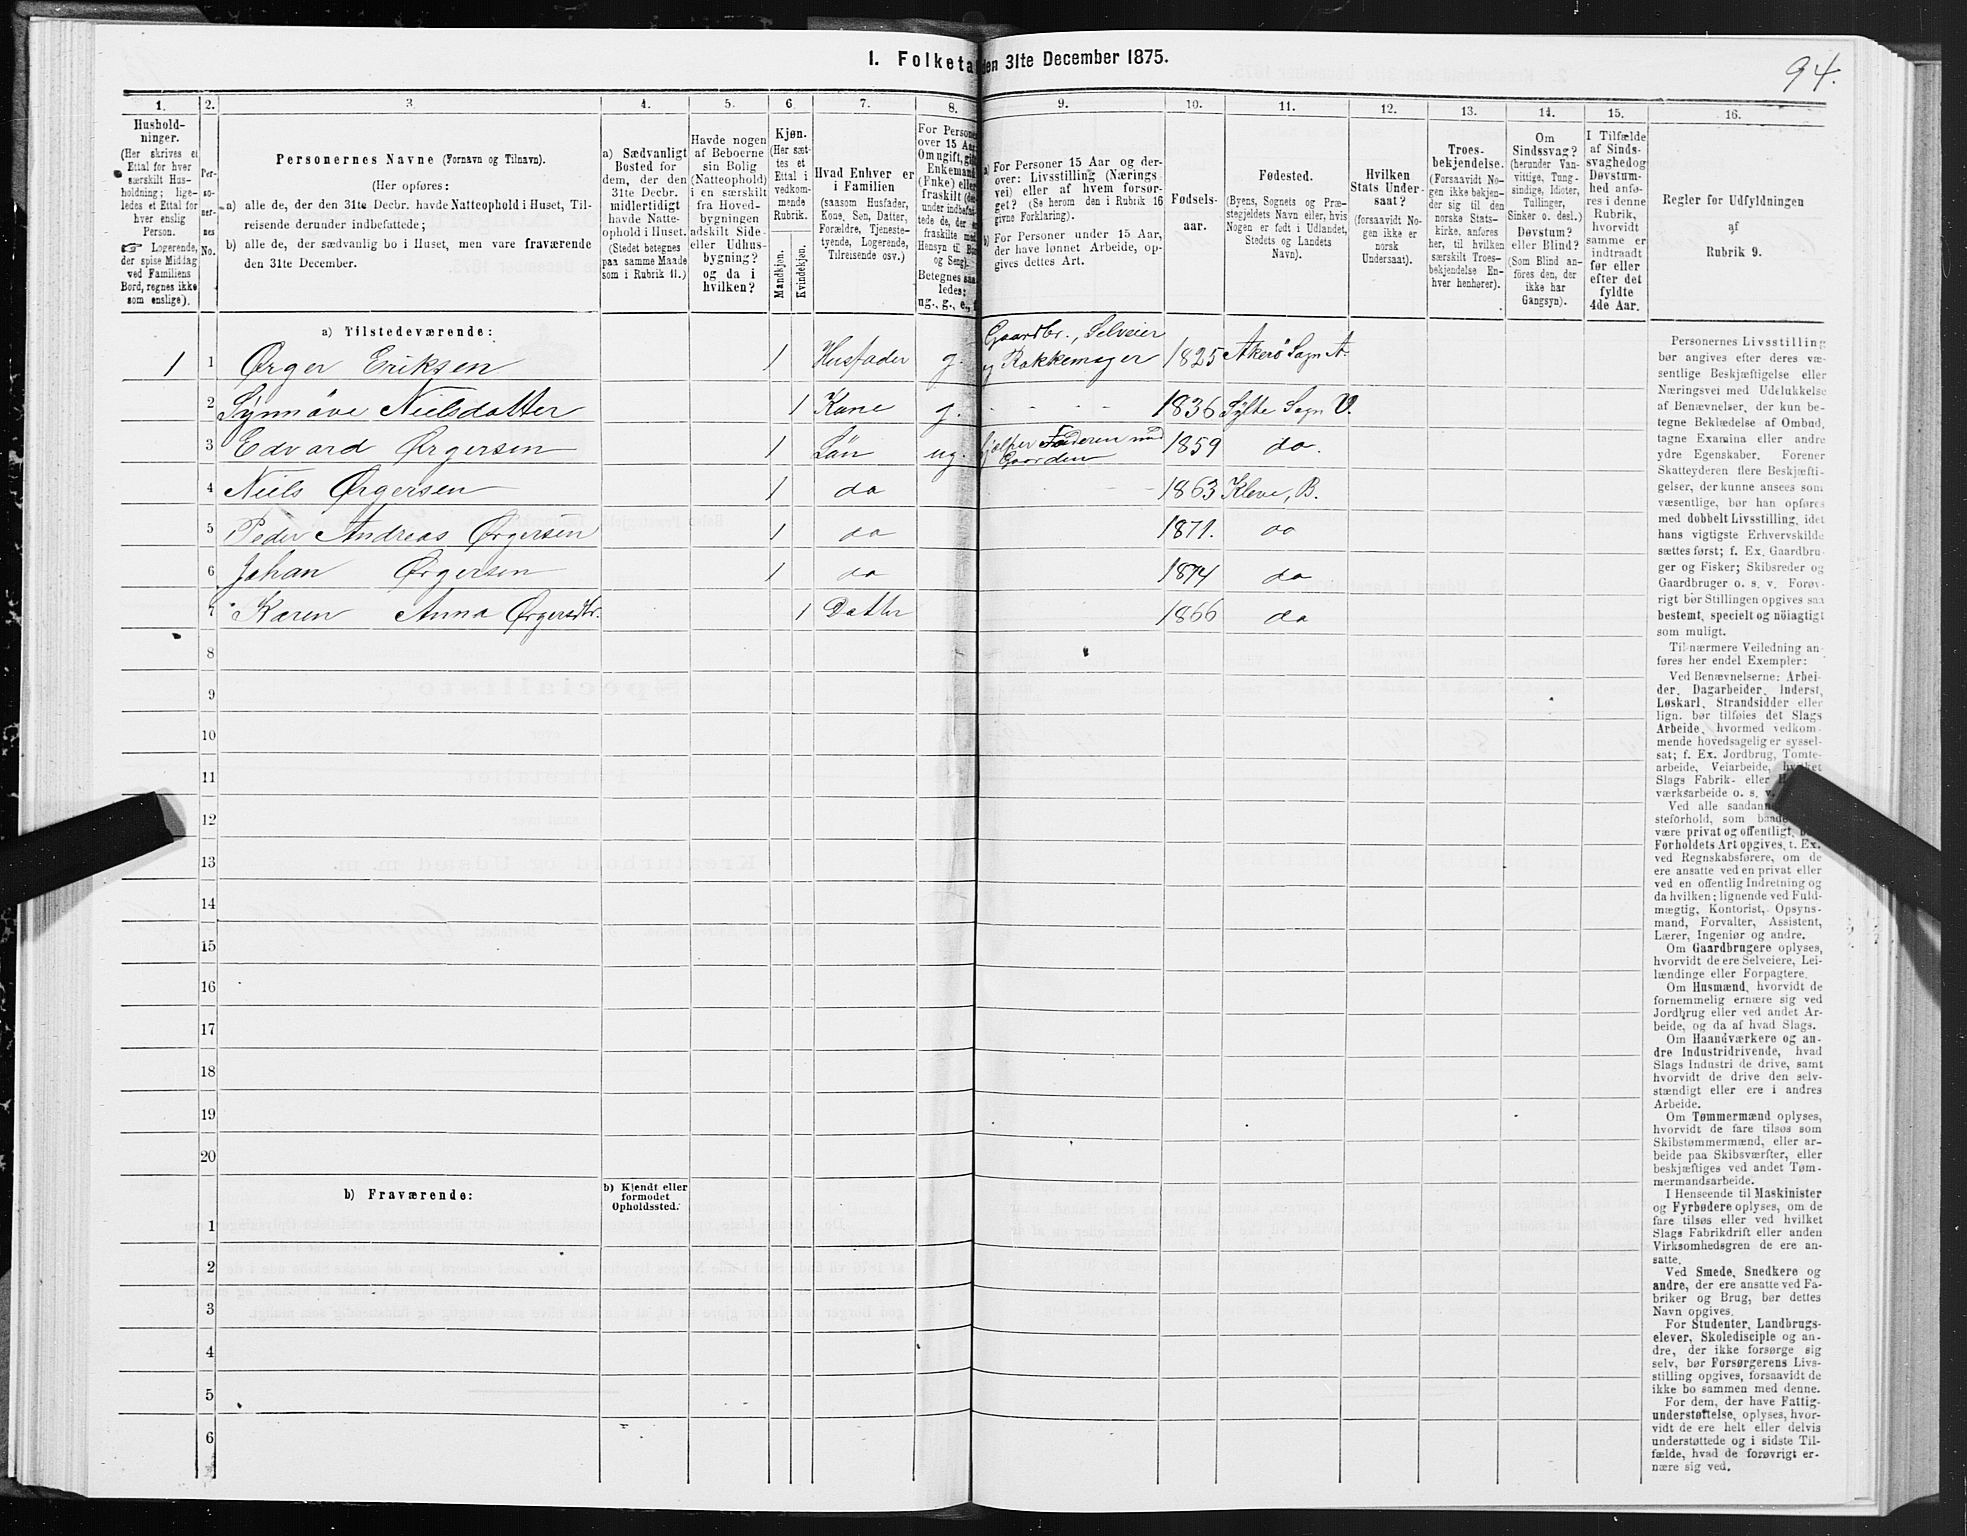 I. Folketa den 31te December 1875.
94.
1. 2. 3. 4. 5. 6. 7. 8. 9. 10. 11. 12. 13. 14. 15. 16.
Hushold-
ninger.
(Her skrives et
Ettal for hver
særskilt Hus-
holdning; lige-
ledes et Ettal for
hver enslig
Person.
☞ Logerende,
der spise Middag
ved Familiens
Bord, regnes ikke
som enslige).
Per-
so-
ner-
nes
No.
Personernes Navne (Fornavn og Tilnavn).
(Her opføres:
a) alle de, der den 31te Decbr. havde Natteophold i Huset, Til-
reisende derunder indbefattede;
b) alle de, der sædvanlig bo i Huset, men vare fraværende
den 31te December.
a) Sædvanligt
Bosted for
dem, der den
31te Decbr.
midlertidigt
havde Natte-
ophold i Huset.
(Stedet betegnes
paa samme Maade
som i Rubrik 11.)
Havde nogen
af Beboerne
sin Bolig
(Natteophold)
i en særskilt
fra Hoved-
bygningen
adskilt Side-
eller Udhus-
bygning?
og da i
hvilken?
Kjøn.
(Her sæt-
tes et
Ettal i
vedkom-
mende
Rubrik.
Mandkjøn.
Kvindekjøn.
Hvad Enhver er
i Familien
(saasom Husfader,
Kone, Søn, Datter,
Forældre, Tjeneste-
tyende, Logerende,
Tilreisende osv.)
For Persone
over 15 Aar
Om ugift, gif
Enkemand
(Enke) eller
fraskilt (de
under indbefat-
tede de, der er
fraskilte med
Hensyn til Bor
og Seng).
Betegnes saa-
ledes:
ug., g., e.,
a) For Personer 15 Aar og der-
over: Livsstilling (Nærings
vei) eller af hvem forsør-
get? (Se herom den i Rubrik 16
givne Forklaring).
b) For Personer under 15 Aar,
der have lønnet Arbeide, op-
gives dettes Art.
Fødsels-
aar.
Fødested.
(Byens, Sognets og Præ-
stegjeldets Navn eller, hvis
Nogen er født i Udlandet,
Stedets og Landets
Navn).
Hvilken
Stats Under-
saat?
(forsaavidt No-
gen ikke er
norsk
Undersaat).
Troes-
bekjendelse.
(Forsaavidt No-
gen ikke bekjen-
der sig til den
norske Stats-
kirke, anføres
her, til hvilken
særskilt Troes-
bekjendelse En-
hver henhører).
Om
Sindssvag?
(herunder Van-
vittige, Tung-
sindige, Idioter,
Tullinger,
Sinker o. desl.)
Døvstum?
eller Blind?
(Som Blind an-
føres den, der
ikke har
Gangsyn).
I Tilfælde
af Sinds-
svaghed og
Døvstum-
hed anfø-
res i denne
Rubrik,
hvorvidt
samme er
indtraadt
før eller
efter det
fyldte
4de Aar.
Regler for Udfyldningen
af
Rubrik 9.
a) Tilstedeværende:
1 1 Ørger Eriksen 1 Husfader g. Gaardbr., Selveier
og Rokkemager 1825 Akerö Sogn A.
2 Synnöve Nielsdatter 1 Kone g. - - - - 1836 Sylte Sogn V.
3 Edvard Ørgersen 1 Sön ug. hjælper Faderen med
Gaarden 1859 do.
4 Niels Ørgersen 1 do 1863 Kleve, B.
5 Peder Andreas Ørgersen 1 do 1871. do
6 Johan Ørgersen 1 do 1874 do
7 Karen Anna Ørgersdtr. 1 Datter 1866 do
8
9
10
11
12
13
14
15
16
17
18
19
20
b) Fraværende:
b) Kjendt eller
formodet
Opholdssted.
1
2
3
4
5
6
Personernes Livsstilling
bør angives efter deres væ-
sentlige Beskjæftigelse eller
Næringsvei med Udelukkelse
af Benævnelser, der kun be-
tegne Beklædelse af Ombud,
tagne Examina eller andre
ydre Egenskaber. Forener
Skatteyderen flere Beskjæfti-
gelser, der kunne ansees som
væsentlige, bør han opføres
med dobbelt Livsstilling, idet
hans vigtigste Erhvervskilde
sættes først; f. Ex. Gaardbru-
ger og Fisker; Skibsreder og
Gaardbruger o. s. v. Forøv-
rigt bør Stillingen opgives saa
bestemt, specielt og nöiagtigt
som muligt.
Til nærmere Veiledning an-
føres her endel Exempler:
Ved Benævnelserne: Arbei-
der, Dagarbeider, Inderst,
Løskarl, Strandsidder eller
lign. bør tilføies det Slags
Arbeide, hvormed vedkom-
mende hovedsagelig er syssel-
sat; f. Ex. Jordbrug, Tomte-
arbeide, Veiarbeide, hvilket
Slags Fabrik- eller
værksarbeide o. s. v.
Ved alle saadan
steforhold, som baade
være privat og offentligt,
Forholdets Art opgives, f. Ex.
ved Regnskabsførere, om de
ere ansatte ved en privat eller
ved en offentlig Indretning og
da hvilken; lignende ved Fuld-
mægtig, Kontorist, Opsyns-
mand, Forvalter, Assistent,
Lærer, Ingeniør og andre.
Om Gaardbrugere oplyses,
hvorvidt de ere Selveiere, Lei-
lændinge eller Forpagtere.
Om Husmænd, hvorvidt de
fornemmelig ernære sig ved
Jordbrug eller ved andet Ar-
beide, og da af hvad Slags.
Om Haandværkere og an-
dre Industridrivende, hvad
Slags Industri de drive, samt
hvorvidt de drive den selv-
stændigt eller ere i andres
Arbeide.
Om Tømmermænd oplyses,
hvorvidt de fare tilsøs som
Skibstømmermænd, eller ar-
beide paa Skibsværfter, eller
beskjæftiges ved andet Tøm-
mermandsarbeide.
I Henseende til Maskinister
og Fyrbødere oplyses, om de
fare tilsøs eller ved hvilket
Slags Fabrikdrift eller anden
Virksomhedsgren de ere an-
satte.
Ved Smede, Snedkere og
andre, der ere ansatte ved Fa-
briker og Brug, bør dettes
Navn opgives.
For Studenter, Landbrugs-
elever, Skoledisciple og an-
dre, der ikke forsørge sig
selv, bør Forsørgerens Livs-
stilling opgives, forsaavidt de
ikke bo sammen med denne.
For dem, der have Fattig-
understøttelse, oplyses, hvor-
vidt de ere helt eller delvis
understøttede og i sidste Til-
fælde, hvad de forøvrigt er-
nære sig ved.